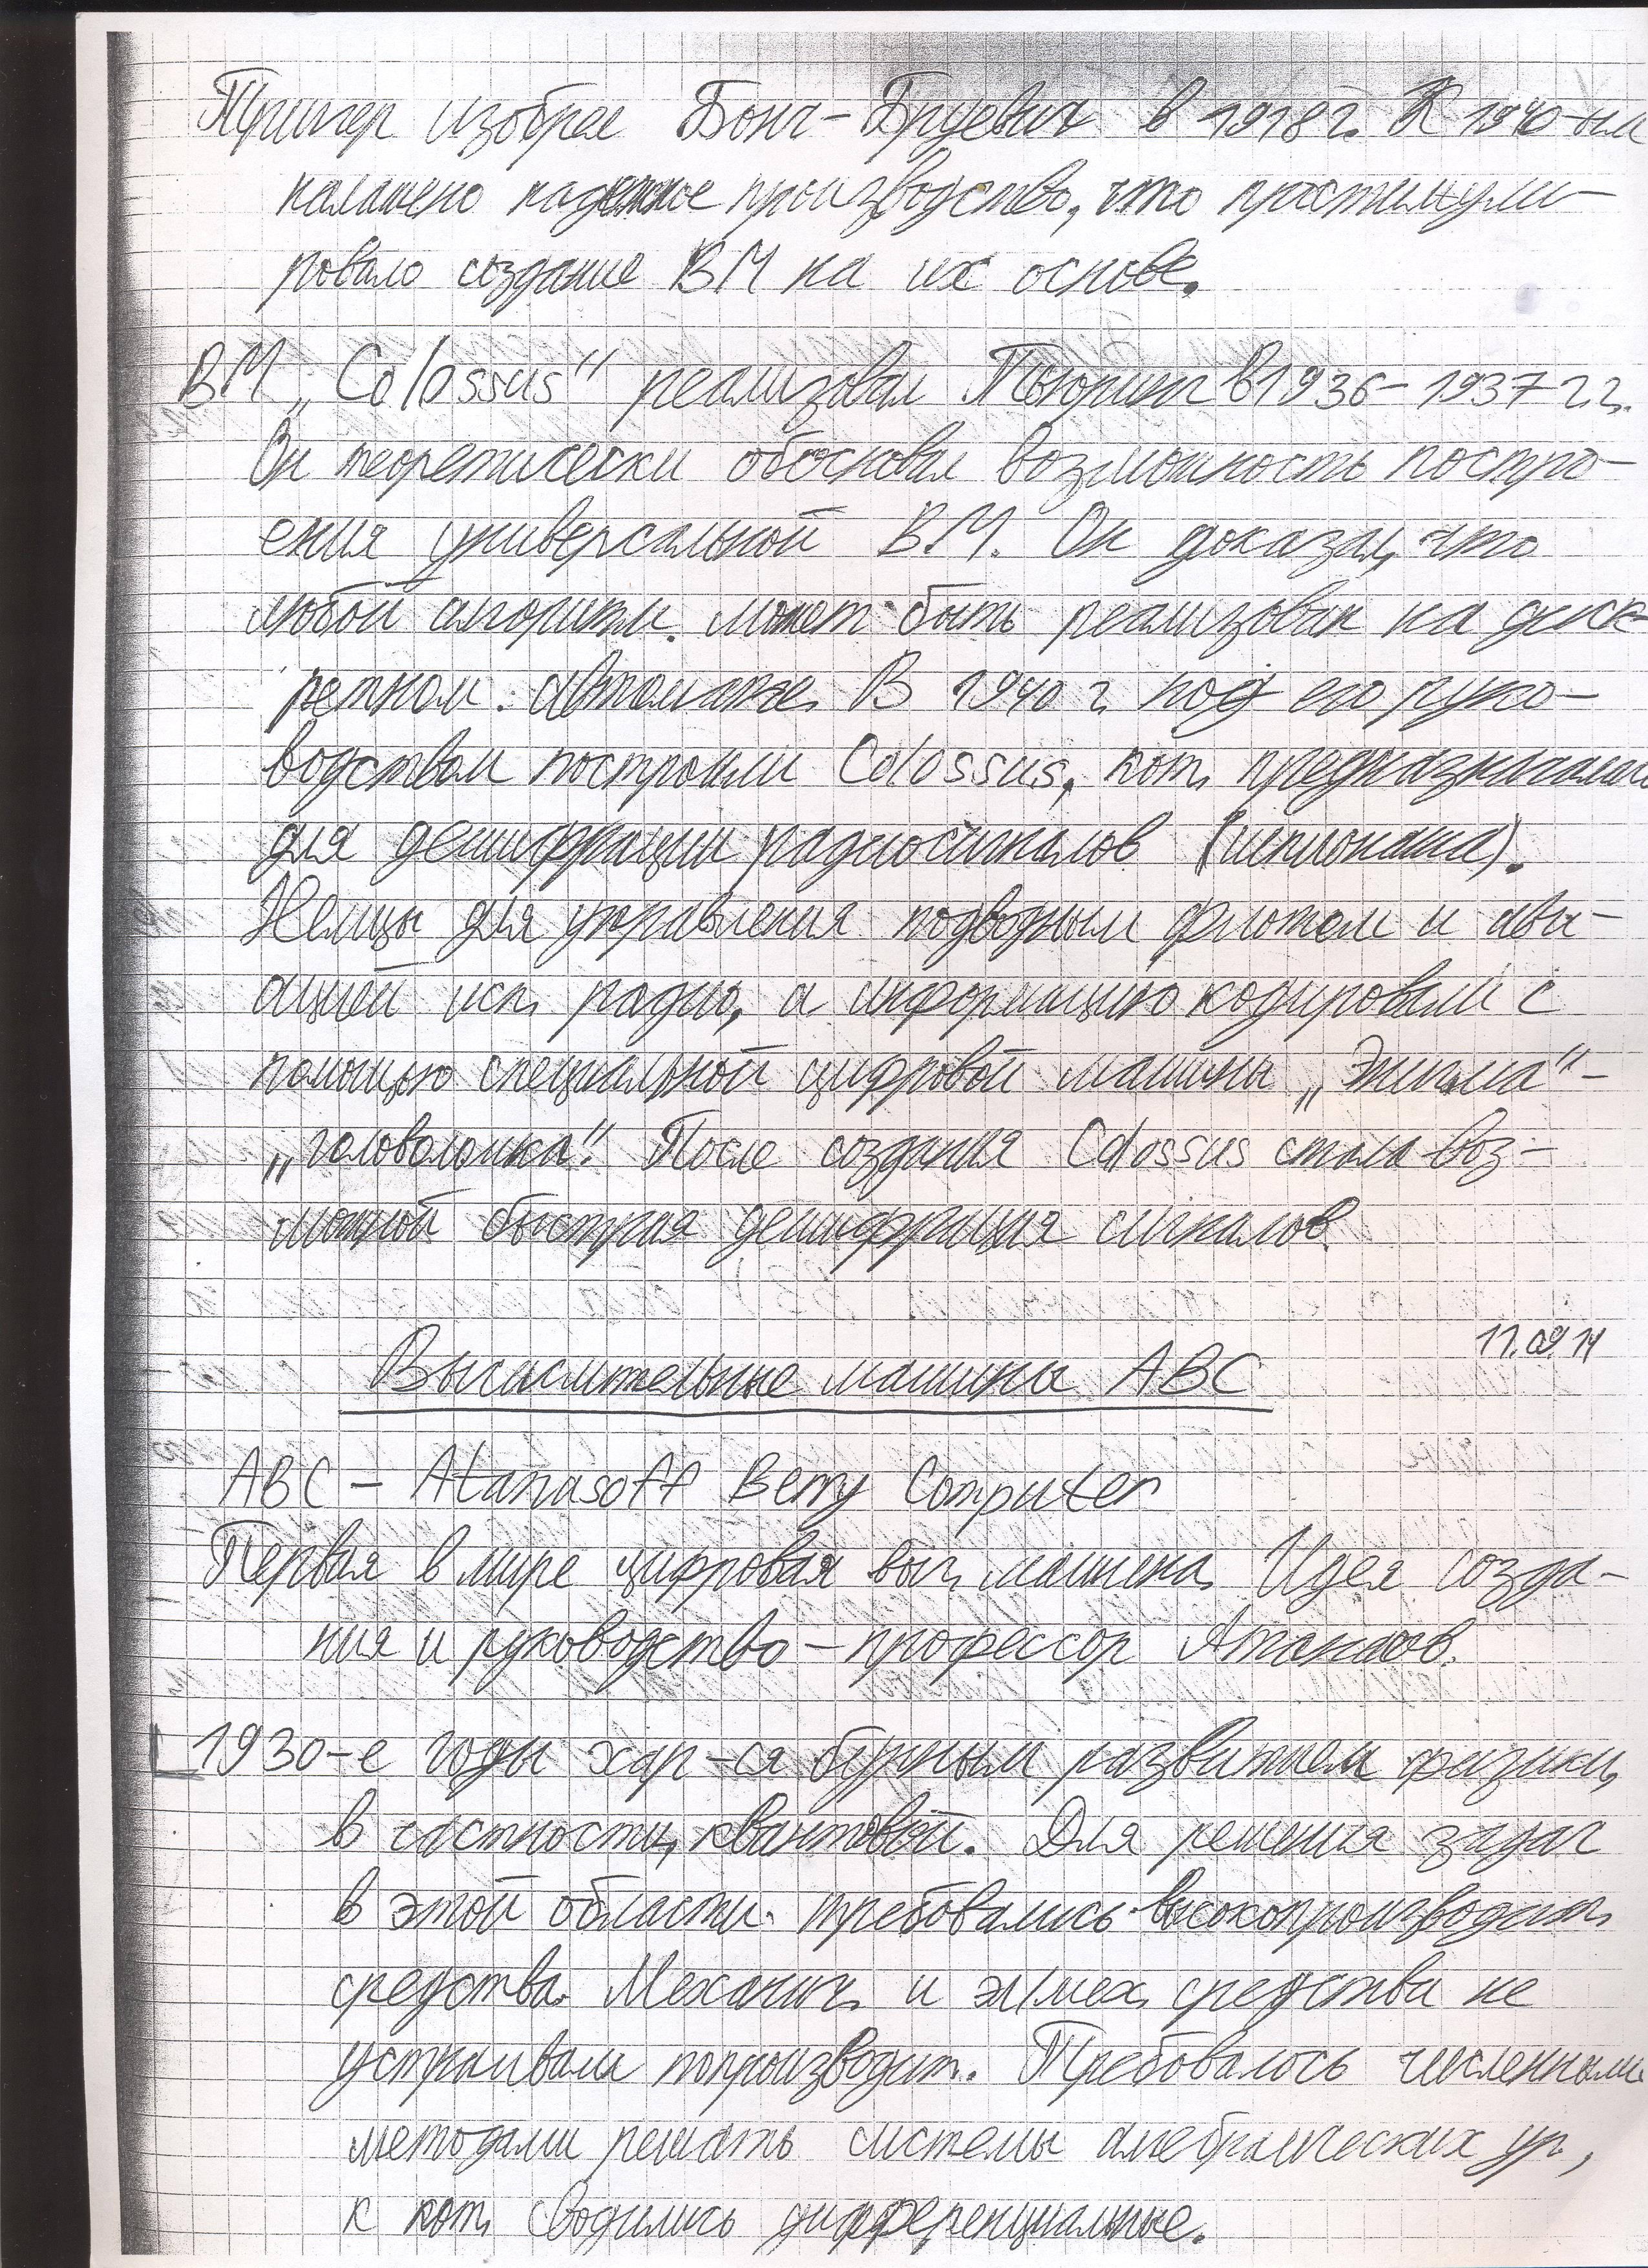 Триггер изобрёл Бонч-Бруевич в 1918г. К 1940-ым
налажено надежное производство, что простимули-
ровало создание ВМ на их основе.
ВМ „Colossus“ реализовал Тьюринг в 1936-1937 г.г.
Он теоретически обосновал возможность постро-
ения универсальной ВМ. Он доказал, что
любой алгоритм может быть реализован на диск-
ретном автомате. В 1940 г. под его руко-
водством построили Colossus, кот. предназначали
для дешифрации радиосигналов (шпионажа).
Немцы для управления подводным флотом и ави-
ацией исп. радио, а информацию кодировали с
помощью специальной цифровой машины „Энигма“-
„головоломка“. После создания Colossus стала воз-
можной быстрая дешифрация сигналов.
11.09.14
Вычислительные машины ABC
ABC - Atanasoff Berry Computer
Первая в мире цифровая выч. машина. Идея созда-
ния и руководство - профессор Атанасов.
1930-е годы хар-ся бурным развитием физики,
в частности, квантовой. Для решения задач
в этой области требовались высокопроизводит.
средства. Механич. и эл/мех. средства не
устраивали по производит. Требовалось численными
методами решать системы алгебраических ур.,
к кот. сводились дифференциальные.